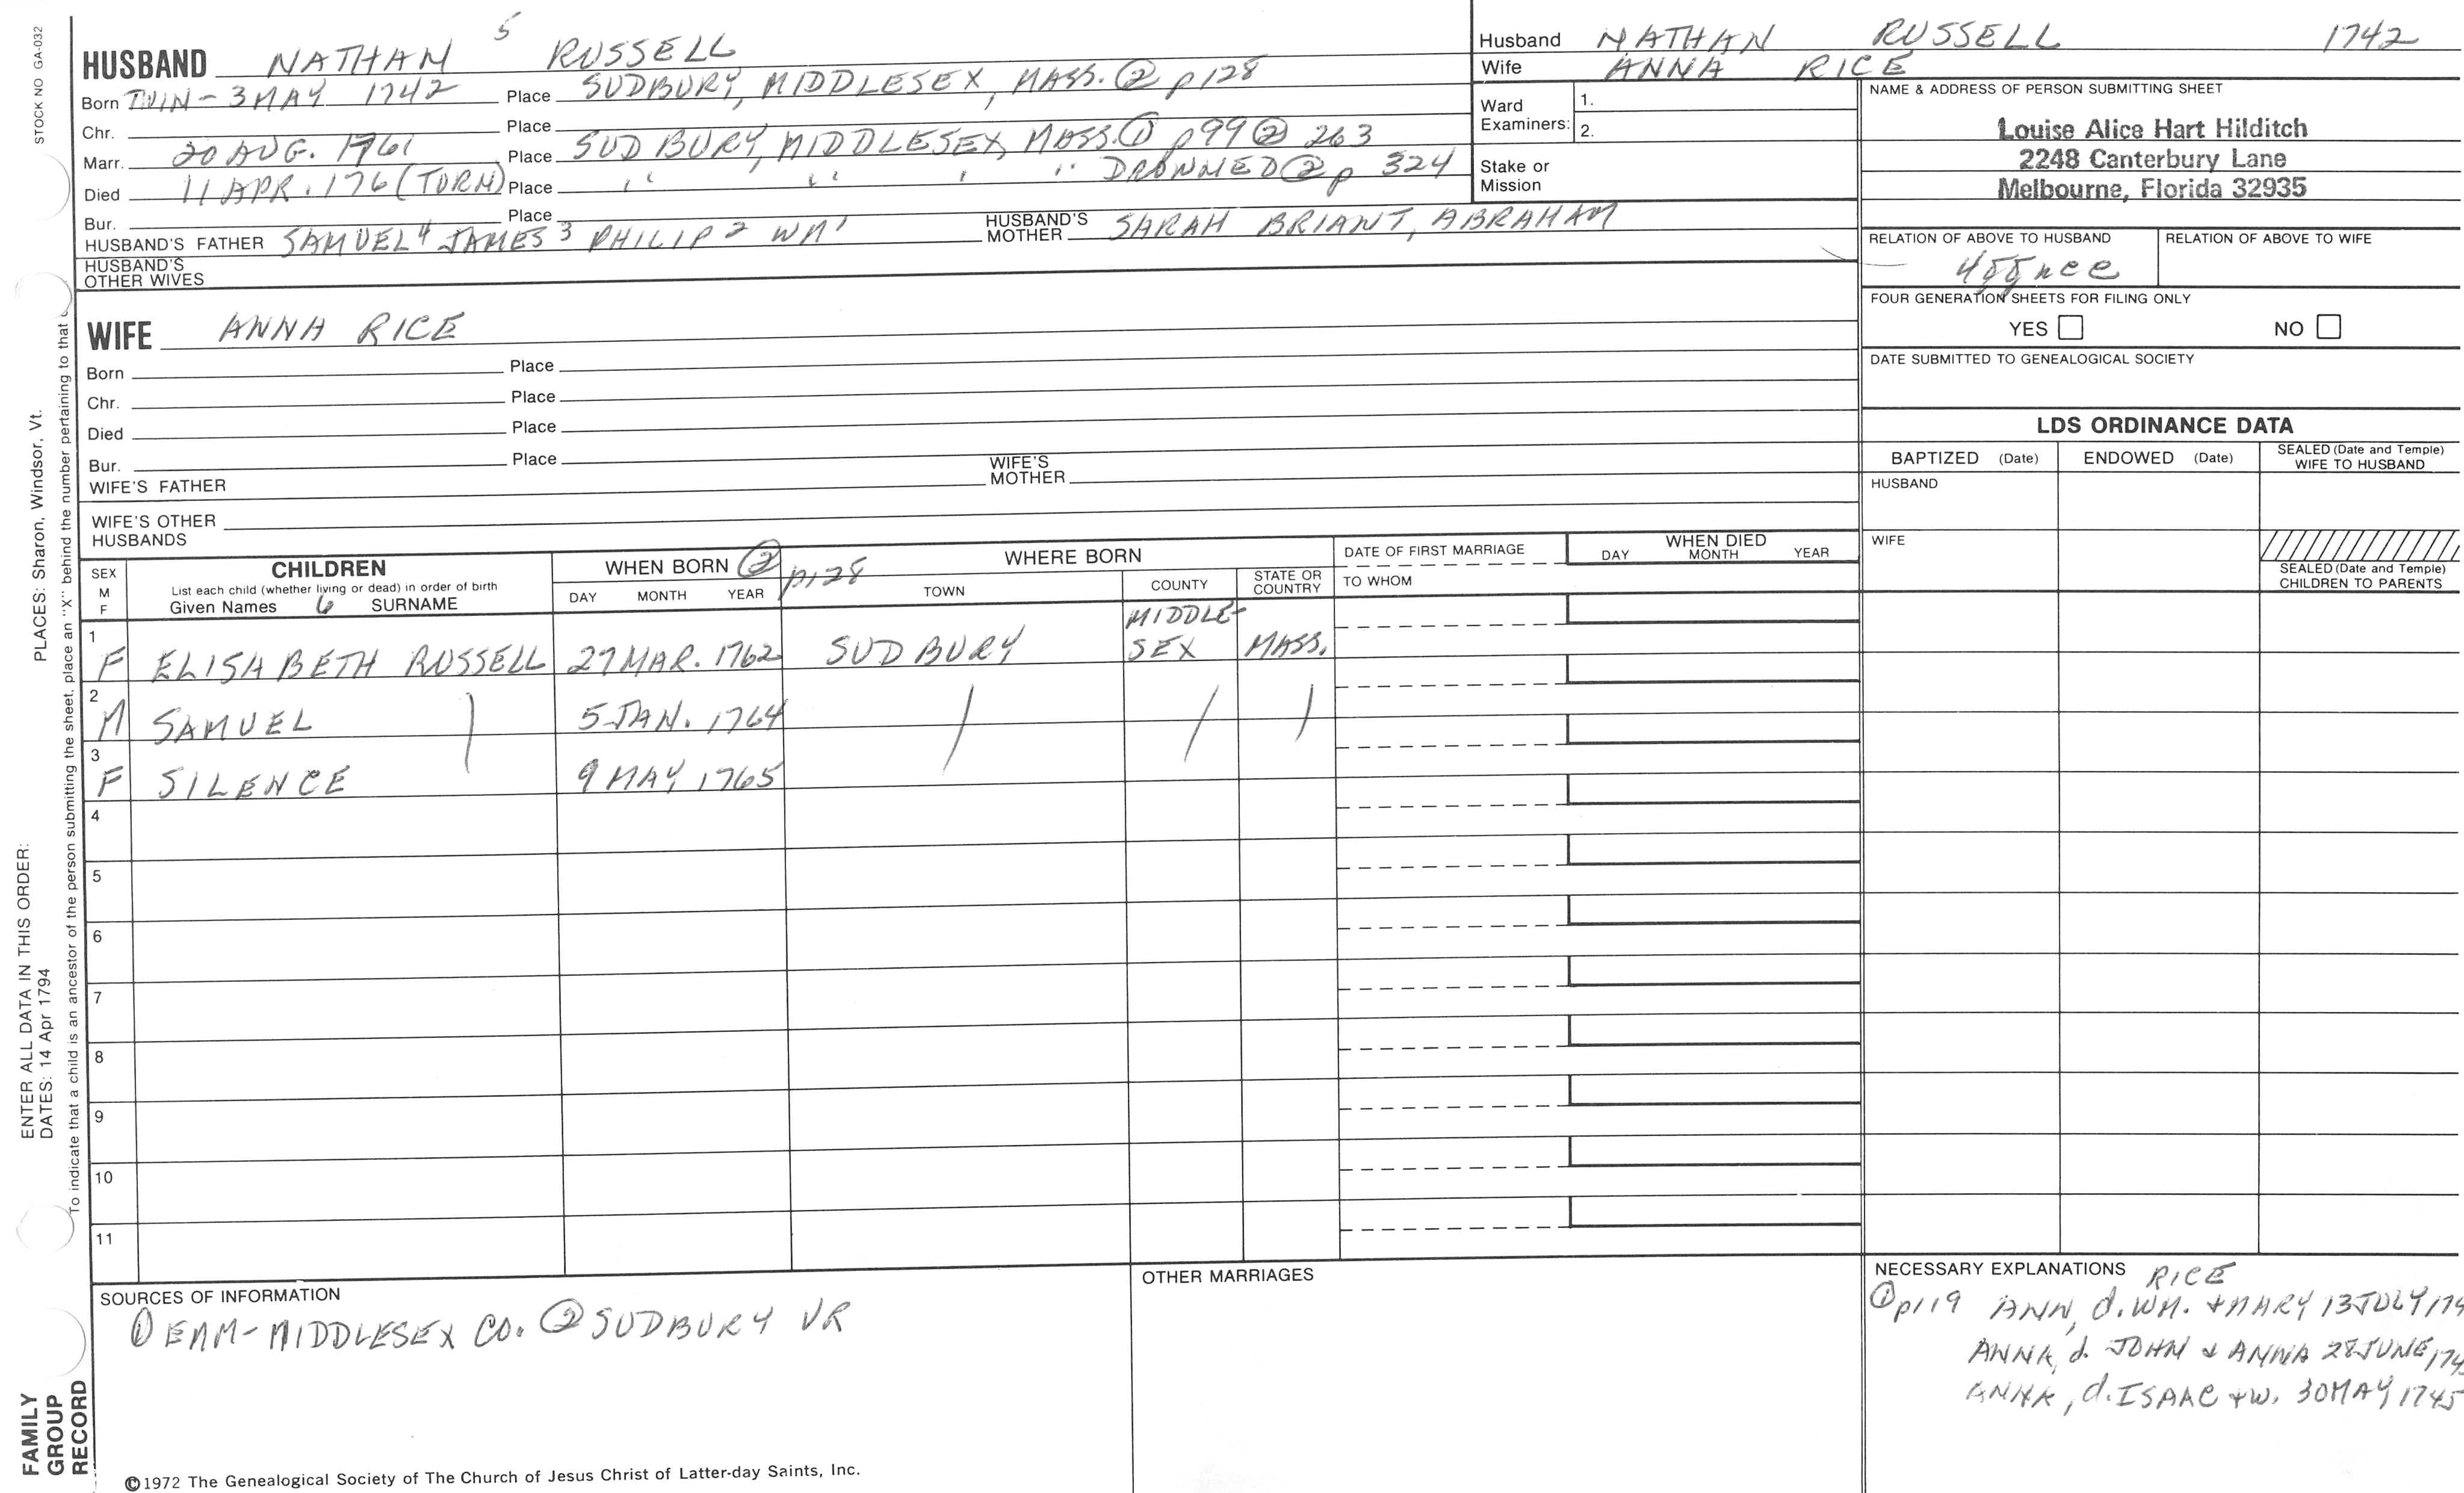 STOCK NO GA-032
HUSBAND NATHAN 5 RUSSELL
Born TWIN - 3 MAY 1742 Place SUDBURY, MIDDLESEX, MASS. ② p 128
Chr. Place
Marr. 20 AUG. 1761 Place SUDBURY, MIDDLESEX, MASS. ① p 99 ② 263
Died 11 APR. 176 (TORN) Place " " " " DROWNED ② p 324
Bur. Place
HUSBAND'S FATHER SAMUEL 4 JAMES 3 PHILIP 2 WM 1 HUSBAND'S MOTHER SARAH BRIANT, ABRAHAM
HUSBAND'S OTHER WIVES
WIFE ANNA RICE
Born Place
Chr. Place
Died Place
Bur. Place
WIFE'S FATHER WIFE'S MOTHER
WIFE'S OTHER HUSBANDS
Husband NATHAN RUSSELL 1742
Wife ANNA RICE
Ward Examiners: 1.
2.
Stake or Mission
NAME & ADDRESS OF PERSON SUBMITTING SHEET
Louise Alice Hart Hilditch
2248 Canterbury Lane
Melbourne, Florida 32935
RELATION OF ABOVE TO HUSBAND RELATION OF ABOVE TO WIFE
FOUR GENERATION SHEETS FOR FILING ONLY
YES NO
DATE SUBMITTED TO GENEALOGICAL SOCIETY
LDS ORDINANCE DATA
BAPTIZED (Date) ENDOWED (Date) SEALED (Date and Temple) WIFE TO HUSBAND
HUSBAND
WIFE
SEALED (Date and Temple) CHILDREN TO PARENTS
SEX M F
CHILDREN
List each child (whether living or dead) in order of birth
Given Names 6 SURNAME
WHEN BORN ② p128
DAY MONTH YEAR
WHERE BORN
TOWN COUNTY STATE OR COUNTRY
DATE OF FIRST MARRIAGE
TO WHOM
WHEN DIED
DAY MONTH YEAR
1 F ELISABETH RUSSELL 27 MAR. 1762 SUDBURY MIDDLE-SEX MASS.
2 M SAMUEL 5 JAN. 1764
3 F SILENCE 9 MAY 1765
4
5
6
7
8
9
10
11
SOURCES OF INFORMATION
① EMM - MIDDLESEX CO. ② SUDBURY VR
OTHER MARRIAGES
NECESSARY EXPLANATIONS RICE
① p119 ANN, d. WM. + MARY 13 JULY 174
ANNA, d. JOHN & ANNA 28 JUNE 174
ANNA, d. ISAAC + w. 30 MAY 1745
©1972 The Genealogical Society of The Church of Jesus Christ of Latter-day Saints, Inc.
FAMILY GROUP RECORD
ENTER ALL DATA IN THIS ORDER:
DATES: 14 Apr 1794 PLACES: Sharon, Windsor, Vt.
To indicate that a child is an ancestor of the person submitting the sheet, place an "X" behind the number pertaining to that